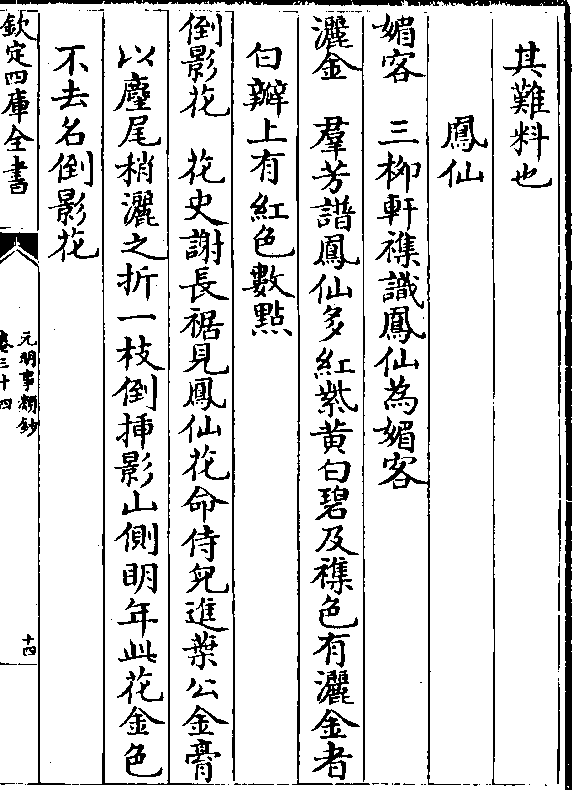 其難料也
鳳仙
媚客　三柳軒襍識鳳仙為媚客
灑金　羣芳譜鳳仙多紅紫黃白碧及襍色有灑金者
白瓣上有紅色數點
倒影花　花史謝長裾見鳳仙花命侍兒進葉公金膏
以麈尾梢灑之折一枝倒挿影山側明年此花金色
不去名倒影花
欽定四庫全書
元明事類鈔
卷三十四
十四